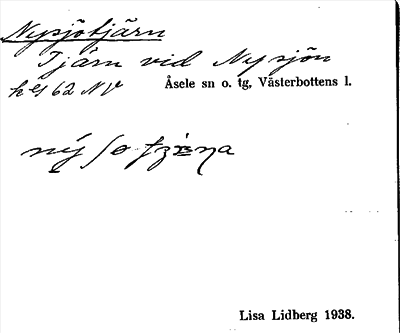 Nysjötjärn
Tjärn vid Nysjön
Åsele sn o. tg, Västerbottens l.
62 NV
Lisa Lidberg 1938.